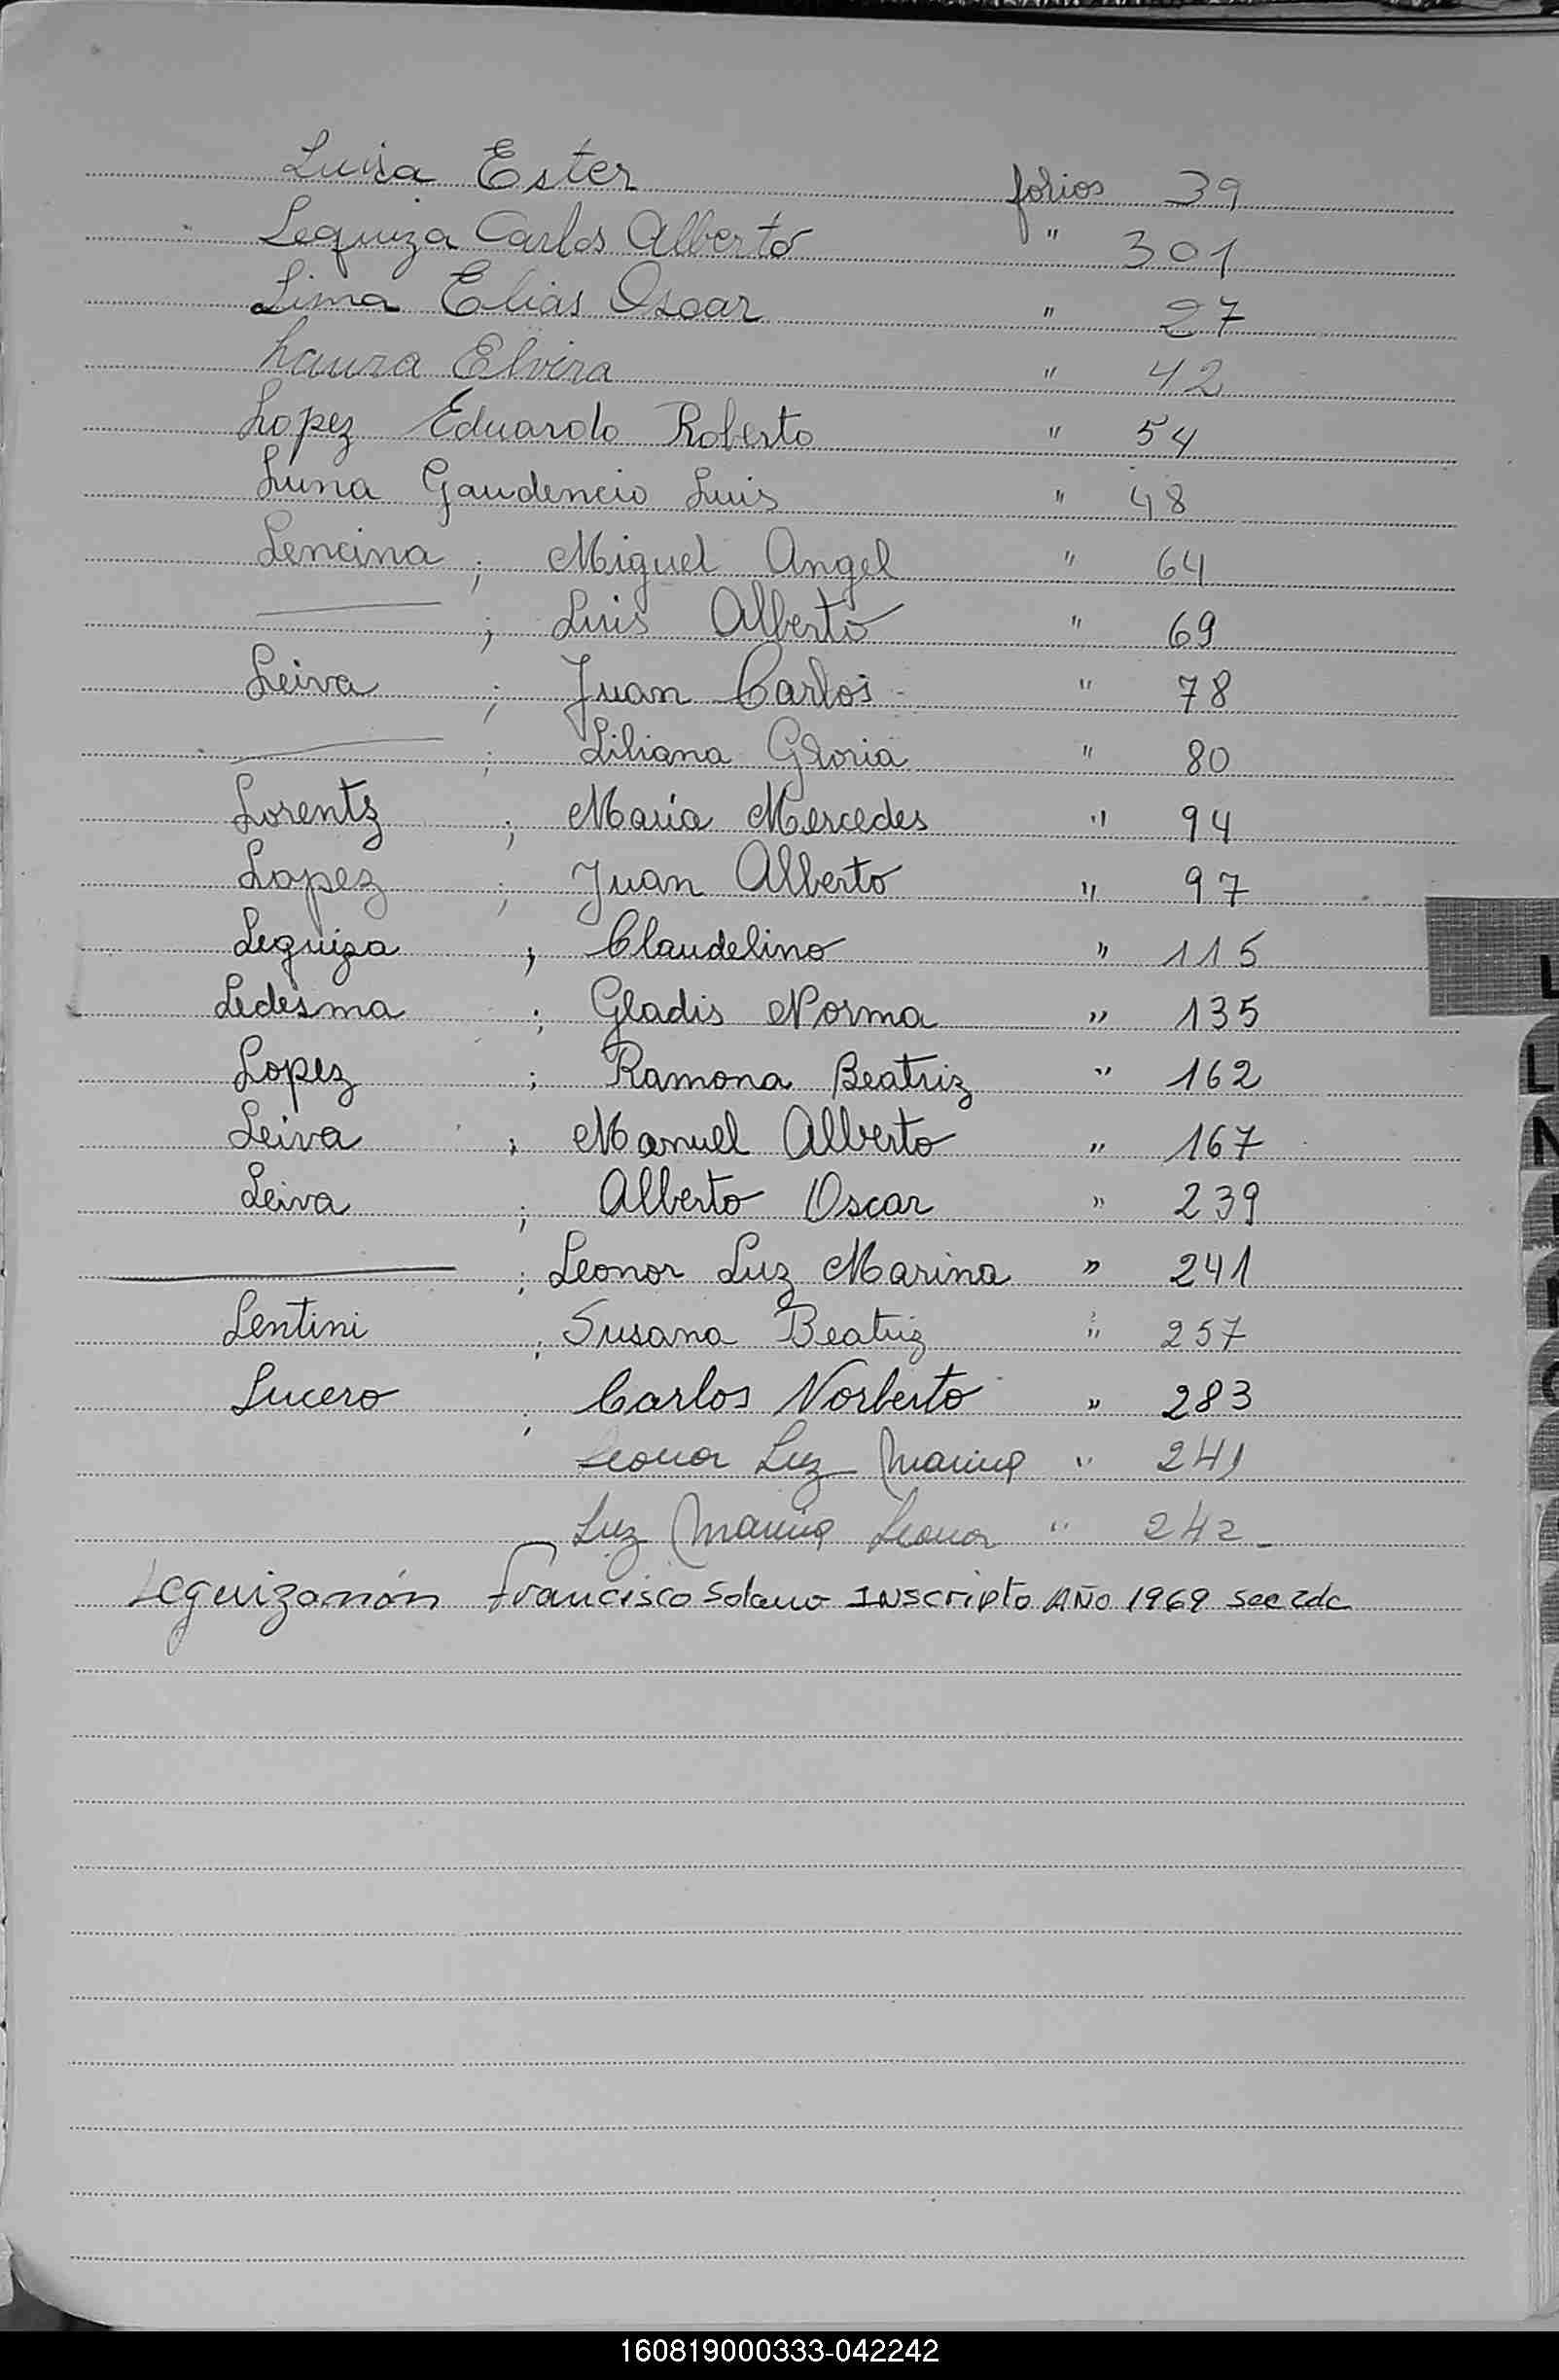 Luisa Ester folios 39
Lequiza Carlos Alberto " 301
Lima Elias Oscar " 27
Laura Elvira " 42
Lopez Eduardo Roberto " 54
Luna Gaudencio Luis " 48
Lencina ; Miguel Angel " 64
——— ; Luis Alberto " 69
Leiva ; Juan Carlos - " 78
——— ; Liliana Gloria " 80
Lorentz ; Maria Mercedes " 94
Lopez ; Juan Alberto " 97
Leguiza ; Claudelino " 115
Ledesma ; Gladis Norma " 135
Lopez ; Ramona Beatriz " 162
Leiva ; Manuel Alberto " 167
Leiva ; Alberto Oscar " 239
——— ; Leonor Luz Marina " 241
Lentini ; Susana Beatriz " 257
Lucero ; Carlos Norberto " 283
Leonor Luz Marina " 241
Luz Marina Leonor " 242
Leguizamón Francisco Solano INscripto AÑo 1969 sec 2da
L
L
N
160819000333-042242